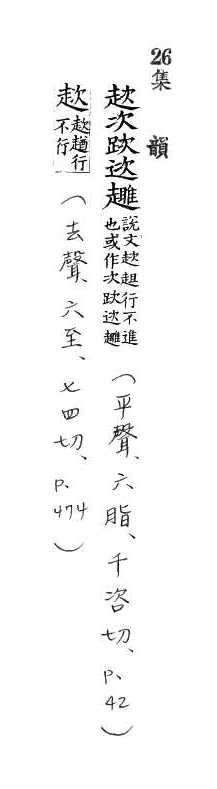 26
集韻
趑次趺𨒮雌說文趑趄行不進也或作次趺𨒮雌(平聲、六脂、千咨切、p.42)
趑趑趄行不行(去聲、六至、七四切、p.474)